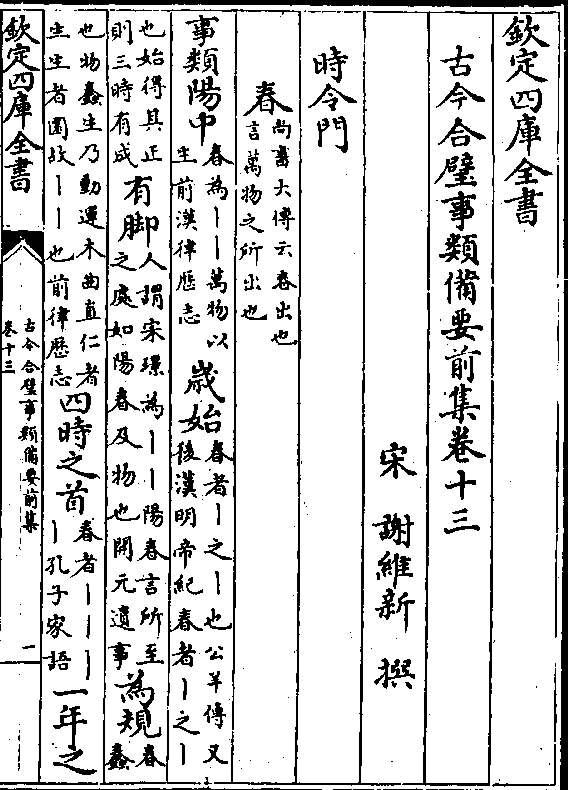 欽定四庫全書
古今合璧事類備要前集卷十三
宋 謝維新 撰
時令門
春 尚書大傳云春出也
言萬物之所出也
事類陽中 春為丨丨萬物以
生前漢律歷志 歲始 春者丨之丨也公羊傳又
後漢明帝紀春者丨之丨
也始得其正
則三時有成 有脚 人謂宋璟為丨丨陽春言所至
之處如陽春及物也開元遺事 為規 春
蠢
也物蠢生乃動運木曲直仁者
生生者圜故丨丨也前律歷志 四時之首 春者丨丨丨
丨孔子家語 一年之
欽定四庫全書
古今合璧事類備要前集
卷十三
一